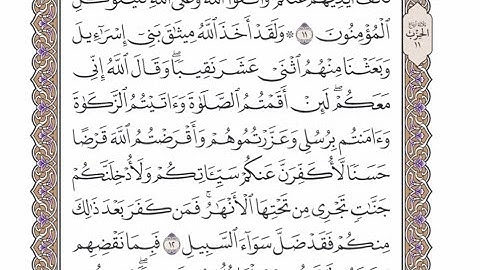 فَكَفَّ أَيْدِيَهُمْ عَنكُمْ وَٱتَّقُوا۟ ٱللَّهَ وَعَلَى ٱللَّهِ فَلْيَتَوَكَّلِ
ٱلْمُؤْمِنُونَ ١١ ۞ وَلَقَدْ أَخَذَ ٱللَّهُ مِيثَٰقَ بَنِىٓ إِسْرَٰٓءِيلَ
وَبَعَثْنَا مِنْهُمُ ٱثْنَىْ عَشَرَ نَقِيبًا ۖ وَقَالَ ٱللَّهُ إِنِّى
مَعَكُمْ ۖ لَئِنْ أَقَمْتُمُ ٱلصَّلَوٰةَ وَءَاتَيْتُمُ ٱلزَّكَوٰةَ
وَءَامَنتُم بِرُسُلِى وَعَزَّرْتُمُوهُمْ وَأَقْرَضْتُمُ ٱللَّهَ قَرْضًا
حَسَنًا لَّأُكَفِّرَنَّ عَنكُمْ سَيِّـَٔاتِكُمْ وَلَأُدْخِلَنَّكُمْ
جَنَّٰتٍ تَجْرِى مِن تَحْتِهَا ٱلْأَنْهَٰرُ ۚ فَمَن كَفَرَ بَعْدَ ذَٰلِكَ
مِنكُمْ فَقَدْ ضَلَّ سَوَآءَ ٱلسَّبِيلِ ١٢ فَبِمَا نَقْضِهِم
الحزب
١١